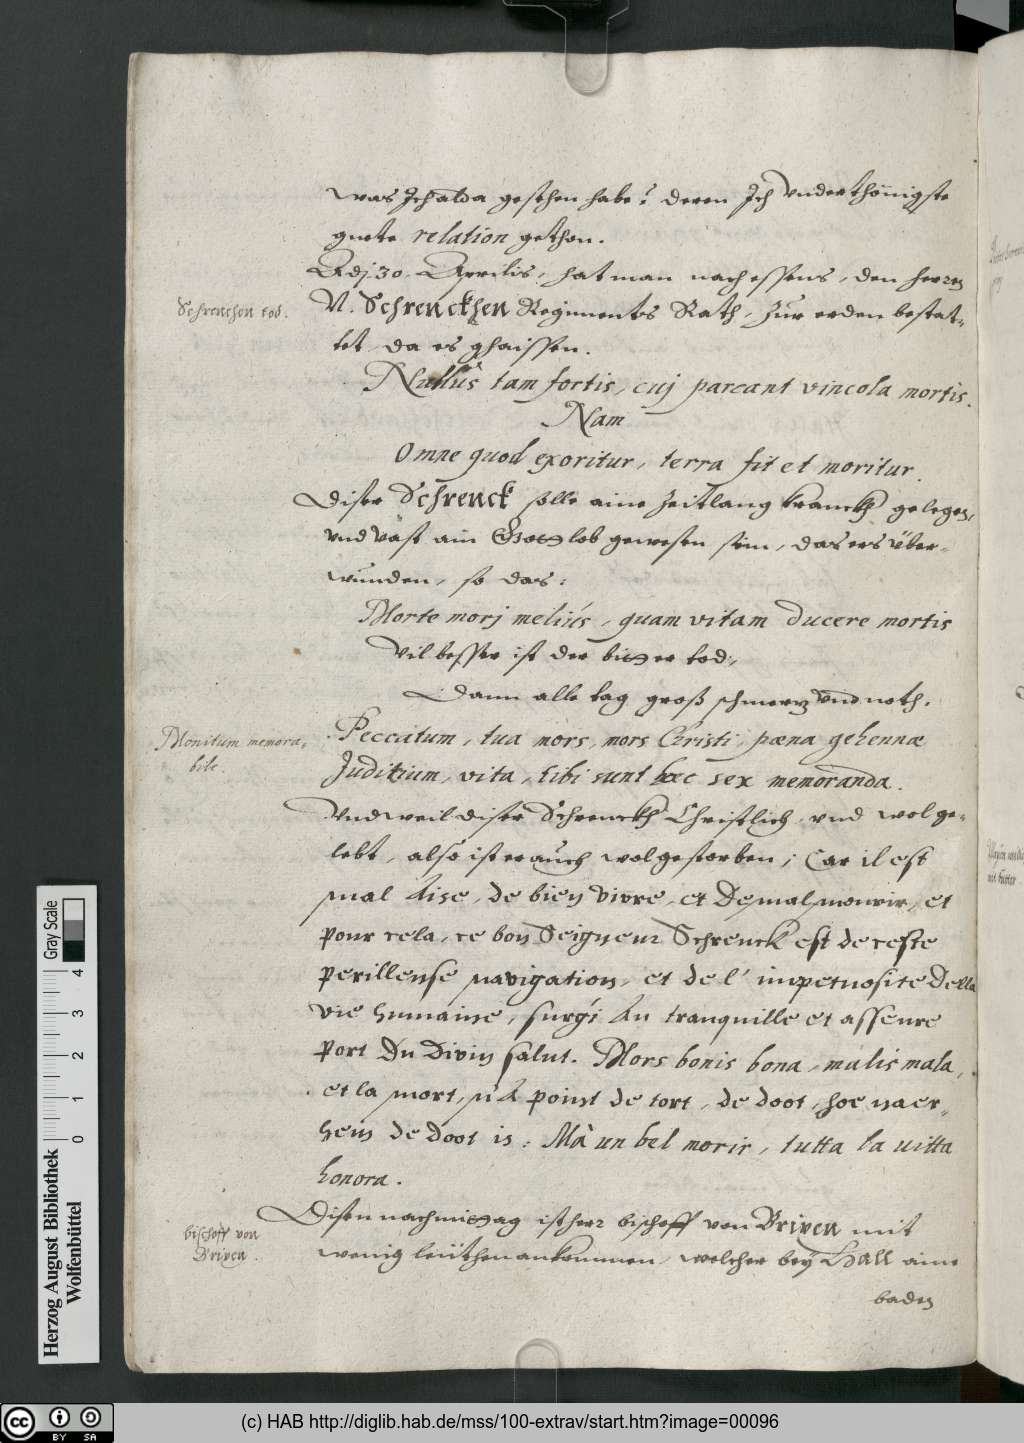 was Ich alda gesehen habe? deren Ich vnderthönigste
guete relation gethon.
Adj 30. Aprilis, hat man nach essens, den herren
Schrenckhen tod.
N. Schrenckhen Regiments Rath, zur erden bestat-
tet, da es ghaissen.
Nullus tam fortis, cuj parcant vincola mortis.
Nam
Omne quod exoritur, terra fit et moritur.
Diser Schrenck solle aine Zeitlang kranckh gelegen,
vnd vast ain Gottslob gewesen sein, das ers über-
wunden, so das:
Morte morj meliús, quam vitam ducere mortis
Vil besser ist der bitter tod,
Dann alle tag groß schmertz vnd noth.
Monitum memora-
bile.
Peccatum, tua mors, mors Christi, pæna gehennæ
Juditium, vita, tibi sunt hæc sex memoranda.
Vnd weil diser Schrenckh Christlich vnd wol ge-
lebt, also ist er auch wol gestorben; Car il est
mal Aise, de bien vivre, et De mal mourir, et
pour cela, ce bon Seigneur Schrenck est de ceste
perilleuse navigation, et de l' impetuosite Della
vie humaine, surgi Au tranquille et asseure
port Du Divin salut. Mors bonis bona, malis mala,
et la mort, n'A point de tort, de doot, hoe naer-
hein de doot is: Mà un bel morir, tutta la uitta
honora.
bischoff von
Brixen.
Disen nachmittag ist herr bischoff von Brixen mit
wenig leüthen ankommen, welcher beÿ Hall aine
baden
Herzog August Bibliothek
Wolfenbüttel
0 1 2 3 4
Gray Scale
BY SA
(c) HAB http://diglib.hab.de/mss/100-extrav/start.htm?image=00096